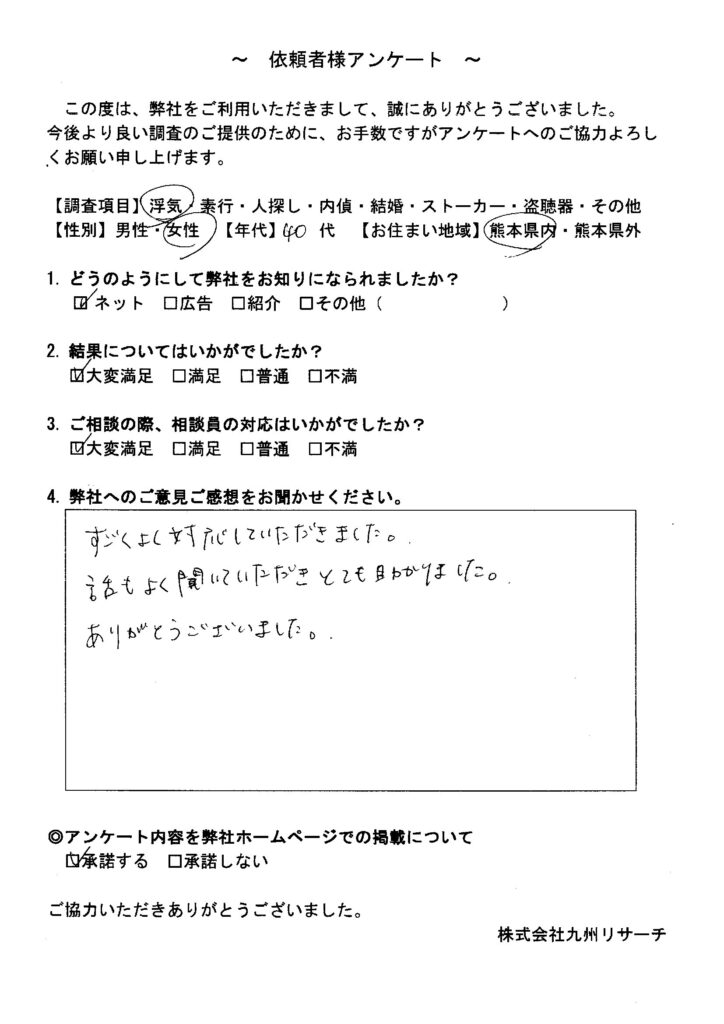 ～ 依頼者様アンケート ～
この度は、弊社をご利用いただきまして、誠にありがとうございました。
今後より良い調査のご提供のために、お手数ですがアンケートへのご協力よろし
くお願い申し上げます。
【調査項目】浮気・素行・人探し・内偵・結婚・ストーカー・盗聴器・その他
【性別】男性・女性 【年代】40 代 【お住まい地域】熊本県内・熊本県外
1. どうのようにして弊社をお知りになられましたか？
☑ネット □広告 □紹介 □その他（ ）
2. 結果についてはいかがでしたか？
☑大変満足 □満足 □普通 □不満
3. ご相談の際、相談員の対応はいかがでしたか？
☑大変満足 □満足 □普通 □不満
4. 弊社へのご意見ご感想をお聞かせください。
すごくよく対応していただきました。
話もよく聞いていただきとても助かりました。
ありがとうございました。
◎アンケート内容を弊社ホームページでの掲載について
☑承諾する □承諾しない
ご協力いただきありがとうございました。
株式会社九州リサーチ